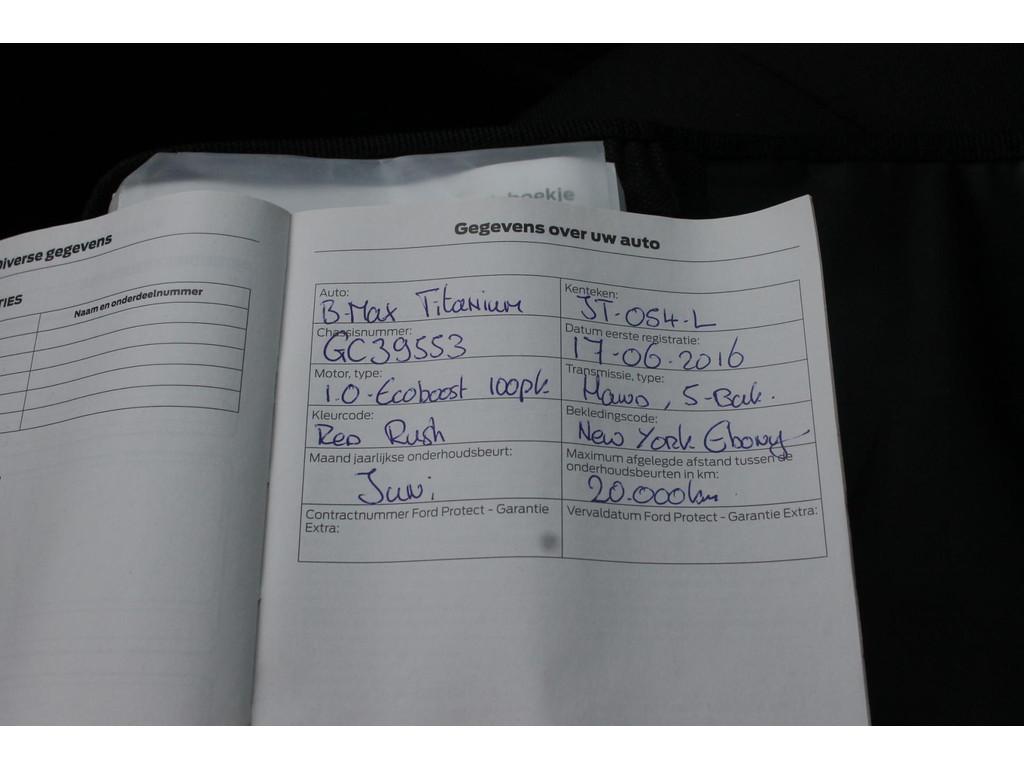 oekje
Diverse gegevens
TIES
Naam en onderdeelnummer
Gegevens over uw auto
Auto:
B-Max Titanium
Kenteken:
JT-054-L
Chassisnummer:
GC39553
Datum eerste registratie:
17-06-2016
Motor, type:
1.0-Ecoboost 100pk
Transmissie, type:
Hand, 5-Bak.
Kleurcode:
Red Rush
Bekledingscode:
New York Ebony
Maand jaarlijkse onderhoudsbeurt:
Juni
Maximum afgelegde afstand tussen de
onderhoudsbeurten in km:
20.000km
Contractnummer Ford Protect - Garantie
Extra:
Vervaldatum Ford Protect - Garantie Extra: